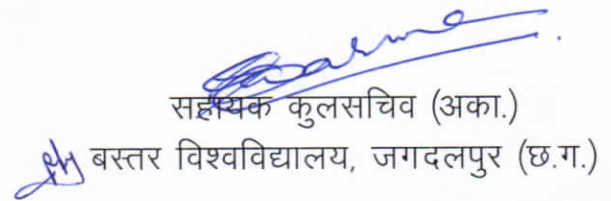 सहायक कुलसचिव (अका.)
बस्तर विश्वविद्यालय, जगदलपुर (छ.ग.)